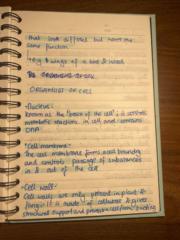 that look different but have the
same function
+Eg = wings of a bird & insect
ORGANELLES OF CELL
·Nucleus:-
known as the 'brain of the cell', it controls
metabolic reactions in cell and contains
DNA.
·Cell membrane:-
The cell membrane forms a cell boundary
and controls passage of substances
in & out of the cell
·Cell wall:-
Cell walls are only present in plant &
fungi. It is made of cellulose & gives
structural support and prevents cell from bursting